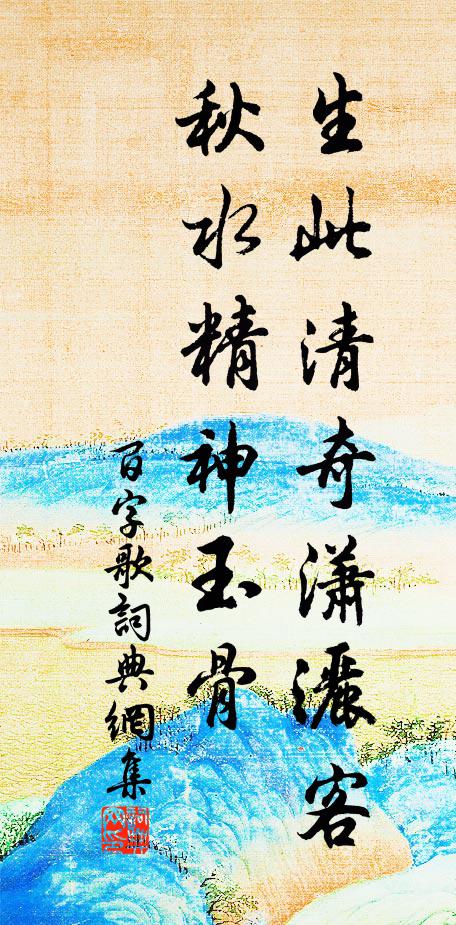 生此清奇瀟灑客
秋水精神玉骨
百字歌詞典網集